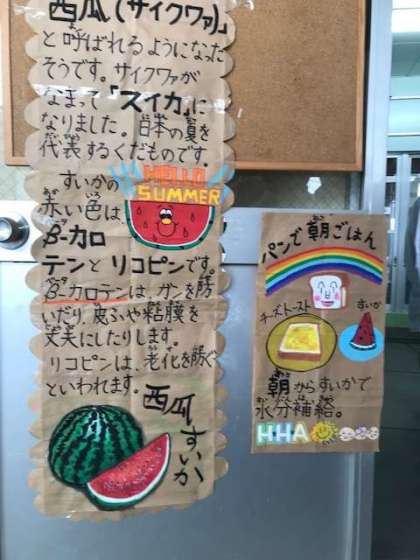 西瓜(サイクワァ)」
と呼ばれるようになった
そうです。サイクワァが
なまって「スイカ」に
なりました。日本の夏を
代表するくだものです。
HELLO
SUMMER
すいかの
赤い色は、
β-カロ
テンとリコピンです。
β-カロテンは、ガンを防
いだり、皮ふや粘膜を
丈夫にしたりします。
リコピンは、老化を防ぐ
といわれます。
西瓜
すいか
パンで朝ごはん
チーズトースト
すいか
朝からすいかで
水分補給。
HHA